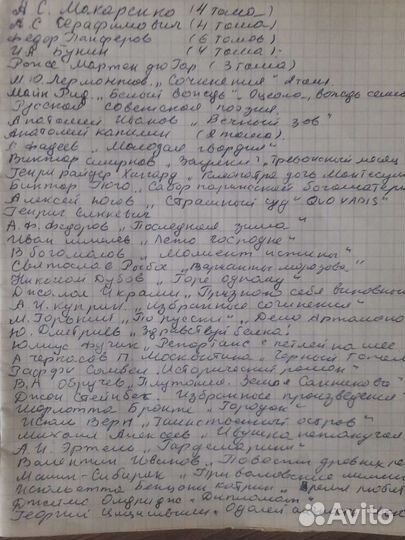 А С. Макаренко (4 тома)
А С Серафимович (4 тома)
Федор Панферов (6 томов)
И А Бунин (4 тома)
Роже Мартен дю Гар (3 тома)
М. Ю. Лермонтов. „Сочинения"
Майн Рид. „Белый вождь", Оцеола, вождь
Русская советская поэзия.
Анатолий Иванов „Вечный зов"
Анатолий Калинин (2 тома).
Фадеев „Молодая гвардия"
Виктор Смирнов „Заулки", Тревожный месяц
Генри Райдер Хаггард „Клеопатра дочь Монтесумы
Виктор Гюго „Собор парижской богоматери
Алексей Югов „Страшный суд" QUO VADIS"
Генрик Сенкевич
А. Ф. Федоров „Последняя зима"
Иван Шмелев „Лето господне"
В Богомолов „Момент истины"
Святослав Рыбас „Варианты Морозова"
Николай Дубов „Горе одному"
Джалол Икрами „Признаю себя виновным
А. И. Куприн „Избранные сочинения"
М. Горький „По Руси" „Дело Артамоно
Ю. Дмитриев „Здравствуй белка!
Юлиус Фучик „Репортаж с петлей на шее
А Черкасов П. Москвитина „Черный Тополь
Гаффи Исторический роман"
В. А Обручев „Плутония. Земля Санникова"
Джон Стейнбек. Избранные произведения
Шарлотта Бронте „Городок"
Жюль Верн „Таинственный остров"
Михаил Алексеев „Ивушка неплакучая
А. И. Эртель „Гарденины"
Валентин Иванов „Повести древних
Мамин-Сибиряк „Приваловские
Жюльетта Бенцони Катрин „Время любит
Джеймс Олдридж „Дипломат"
Георгий
Avito